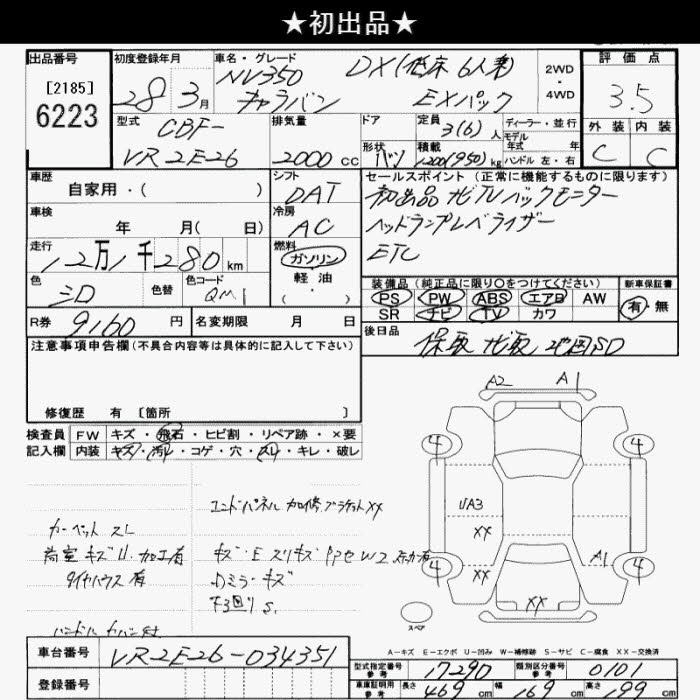 ★初出品★
出品番号
[2185]
6223
初度登録年月
28年3月
車名・グレード
NV350
キャラバン
DX(低床 6人乗)
EXパック
2WD
・
4WD
評価点
3.5
外装 内装
C C
型式
CBF-
VR2E26
排気量
2000cc
ドア
形状
バン
定員
3(6)人
積載
1200(950)kg
ディーラー・並行
モデル
年式 年
ハンドル 左・右
車歴
自家用・( )
シフト
DAT
セールスポイント(正常に機能するものに限ります)
初出品 ナビTV バックモニター
ヘッドランプレベライザー
ETC
車検
年 月( 日)
冷房
AC
走行
12万1千280km
燃料
ガソリン
軽油
( ・ )
色
シロ
色替
色コード
QM1
装備品(純正品に限り○をつけてください)
PS PW ABS エアB AW
SR ナビ TV カワ
新車保証書
有・無
R券
9160円
名変期限 月 日
後日品
保取 ナビ取 地図SD
注意事項申告欄(不具合内容等は具体的に記入して下さい)
修復歴 有 [箇所 ]
検査員
記入欄
FW キズ・飛石・ヒビ割・リペア跡・×要
内装 キズ・汚れ・コゲ・穴・スレ・キレ・破レ
A2 A1
4 4
UA3
XX
A1
4 4
XX
XX
スペア
カーペット スレ
荷室 キズU. 加工有
タイヤハウス 有
エンドパネル 加修 ブラケットXX
キズ・E スリキズ
Dミラーキズ
下回りS.
A-キズ E-エクボ U-凹み W-補修跡 S-サビ C-腐食 XX-交換済
車台番号
VR2E26-034351
登録番号
型式指定番号
参考
17290
類別区分番号
参考
0101
車庫証明用
参考
長さ 469cm 幅 169cm 高さ 199cm